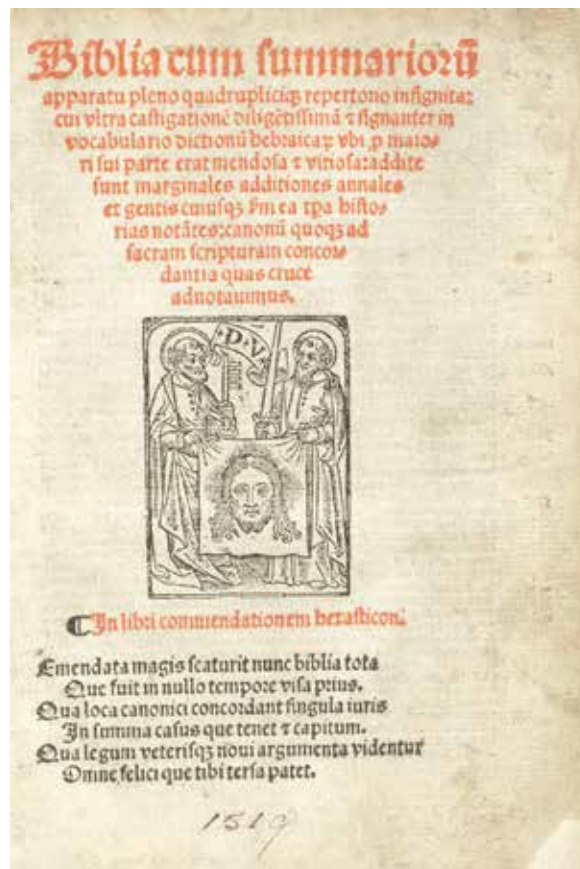 Biblia cum summarioruȝ
apparatu pleno quadrupliciqꝫ repertorio insignita:
cui vltra castigationē diligētissimā ⁊ signanter in
vocabulario dictionū hebraicaꝝ vbi ꝓ maio⸗
ri sui parte erat mendosa ⁊ vitiosa: addite
sunt marginales additiones annales
et gentis cuiusqꝫ ẜm ea tꝑa histo⸗
rias notātes: canonū quoqꝫ ad
sacram scripturam concor⸗
dantia quas cruce
adnotauimus.
·D·V·
¶ In libri commendationem hexasticon.
Emendata magis scaturit nunc biblia tota
Que fuit in nullo tempore visa prius.
Qua loca canonici concordant singula iuris
In summa casus que tenet ⁊ capitum.
Qua legum veterisqꝫ noui argumenta videntur
Omne, felici que tibi tersa patet.
1519